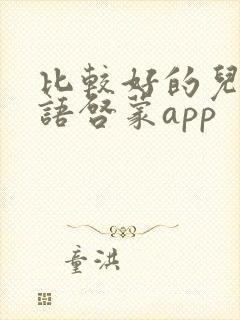 比較好的兒
語啓蒙app
童洪